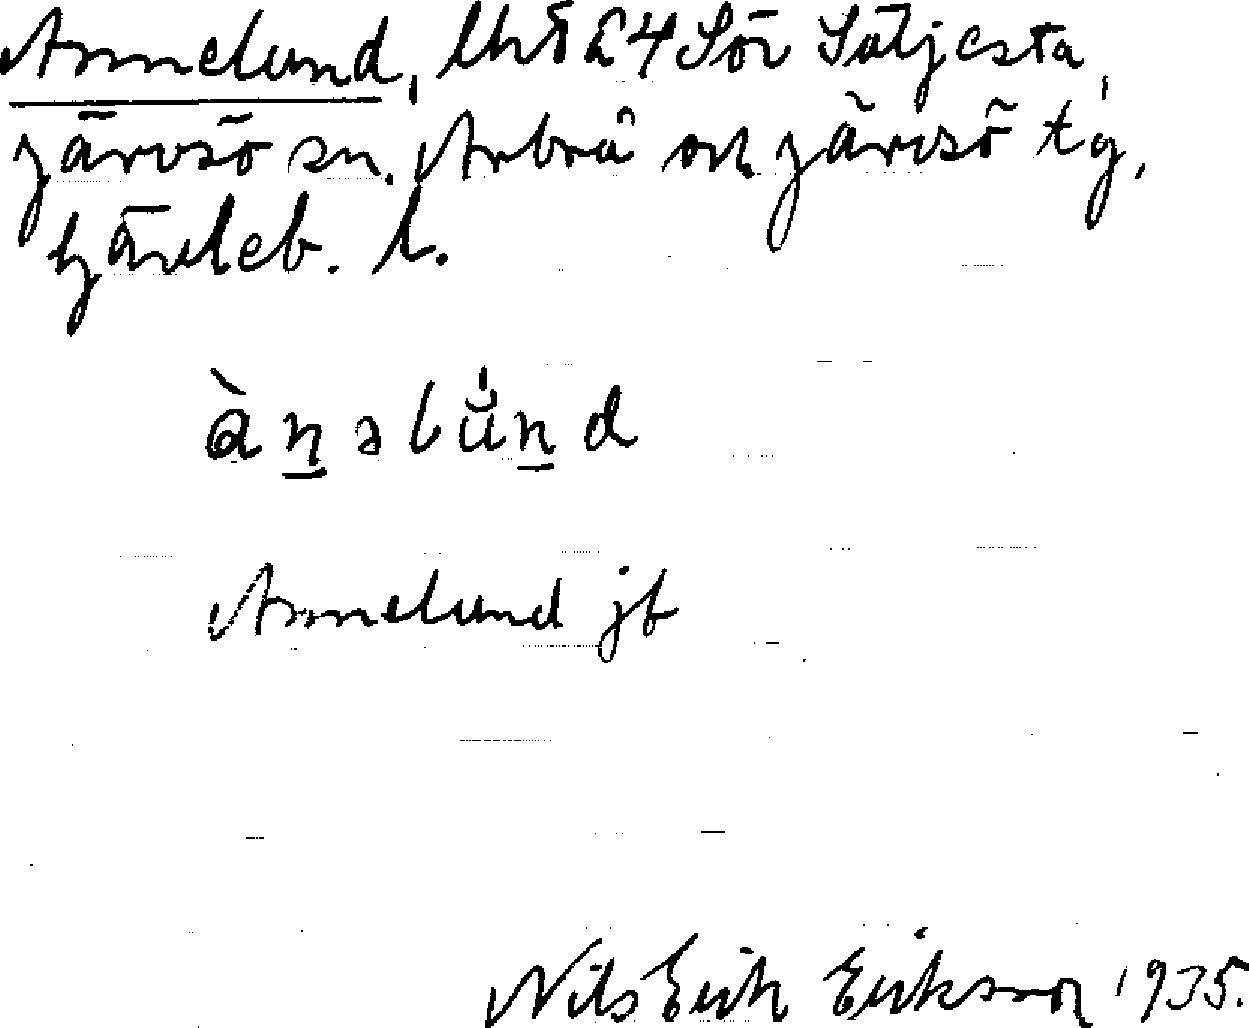 Annelund, Sör Säljesta,
Järvsö sn. Arbrå och Järvsö tg,
Gävleb. l.
Annelund jb
Nils Erik Erikson 1935.